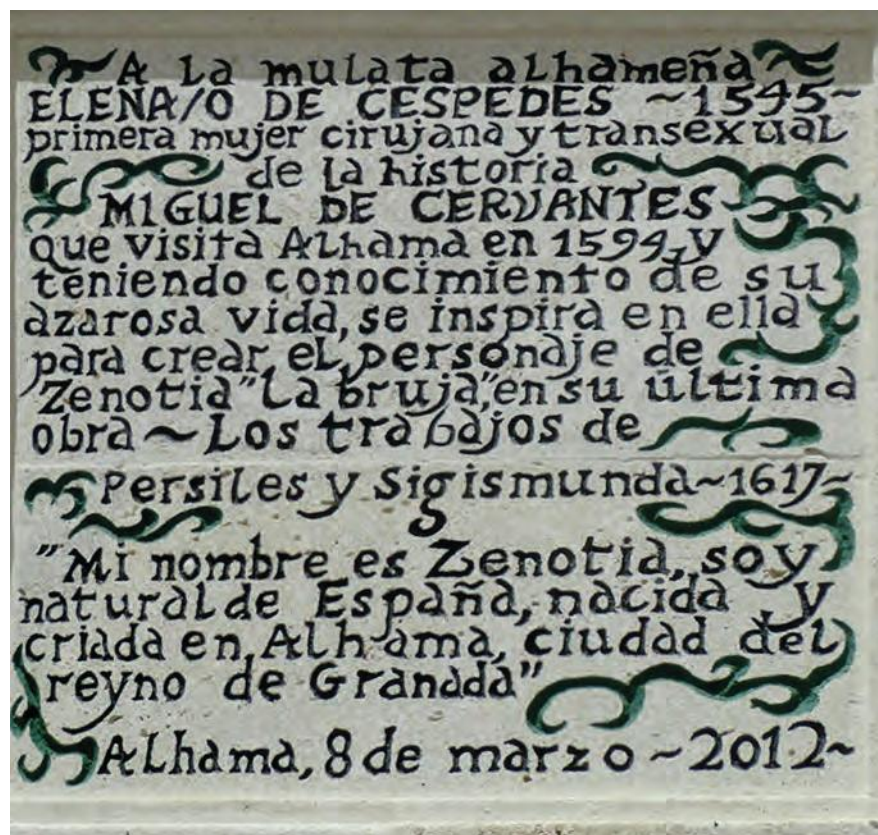 A La mulata alhameña
ELENA/O DE CESPEDES ~1545~
primera mujer cirujana y transexual
de la historia
MIGUEL DE CERVANTES
que visita Alhama en 1594, y
teniendo conocimiento de su
azarosa vida, se inspira en ella
para crear el personaje de
"Zenotia" "La bruja", en su última
obra ~ Los trabajos de
Persiles y Sigismunda ~1617~
"Mi nombre es Zenotia, soy
natural de España, nacida y
criada en Alhama, ciudad del
reyno de Granada"
Alhama, 8 de marzo ~2012~